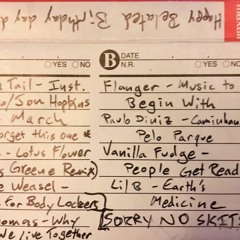 Happy Belated Birthday day d
YES NO
B DATE YES NO
N.R.
Tail - Inst.
/Jon Hopkins
- March
orget this one
- Lotus Flower
s Greene Remix
e Weasel -
for Body Lockers
omas - Why
we live Together
Flanger - Music to
Begin With
Paulo Diniz - Caminhan
Pelo Parque
Vanilla Fudge -
People Get Read
Lil B - Earth's
Medicine
SORRY NO SKITS